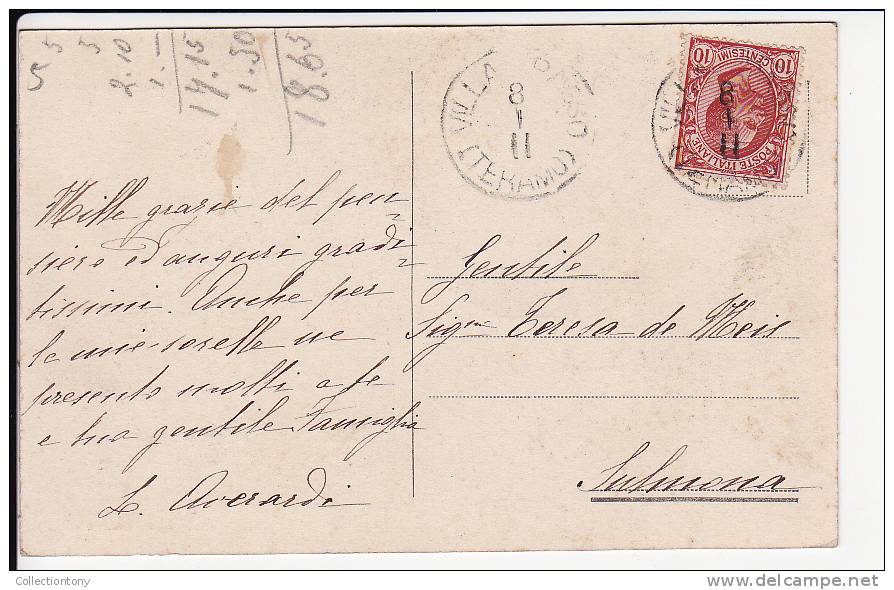 5 5 3 2.10 1.-
17.15
1.50
18.65
VILLA
8
1
11
(TERAMO)
10 10
CENTESIMI
POSTE ITALIANE
8
1
11
Mille grazie del pen=
siero ed auguri gradi=
tissimi. Anche per
le mie sorelle ne
presento molti a te
e tua gentile Famiglia
L. Averardi
Gentile
Sig.na Teresa de Meis
Sulmona
Collectiontony
delcampe.net